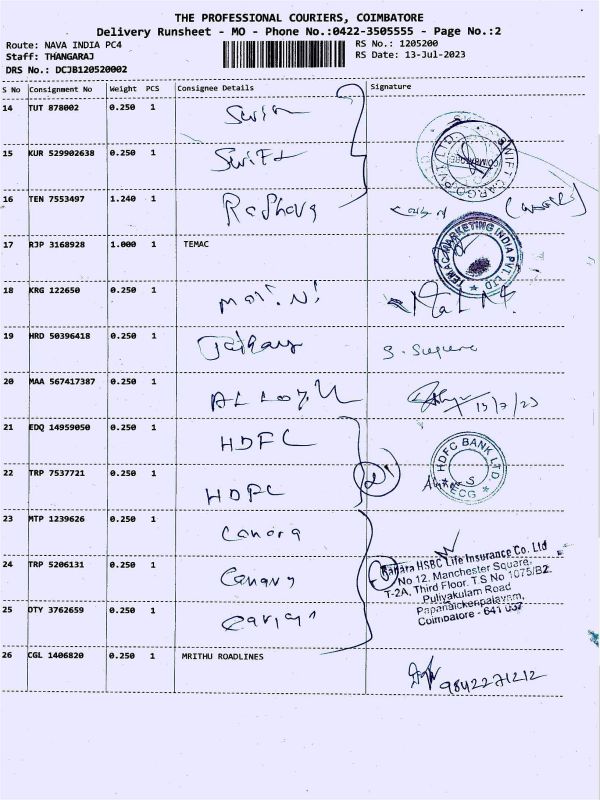 THE PROFESSIONAL COURIERS, COIMBATORE
Delivery Runsheet - MO - Phone No.:0422-3505555 - Page No.:2
Route: NAVA INDIA PC4
RS No.: 1205200
Staff: THANGARAJ
RS Date: 13-Jul-2023
DRS No.: DCJB120520002
S No Consignment No Weight PCS Consignee Details Signature
14 TUT 878002 0.250 1
15 KUR 529902638 0.250 1 Swift
SWIFT CARGO PVT. LTD
COIMBATORE
16 TEN 7553497 1.240 1
17 RJP 3168928 1.000 1 TEMAC
TEMAC MARKETING INDIA PVT. LTD
18 KRG 122650 0.250 1
19 HRD 50396418 0.250 1
20 MAA 567417387 0.250 1
13/7/23
21 EDQ 14959050 0.250 1 HDFC
HDFC BANK LTD.
ECG
22 TRP 7537721 0.250 1 HDFC
23 MTP 1239626 0.250 1 Canara
24 TRP 5206131 0.250 1 Canara
Canara HSBC Life Insurance Co. Ltd
No 12, Manchester Square,
T-2A, Third Floor, T.S No 1075/B2.
Puliyakulam Road
Papanaickenpalayam,
Coimbatore - 641 037
25 OTY 3762659 0.250 1
26 CGL 1406820 0.250 1 MRITHU ROADLINES
9842271212